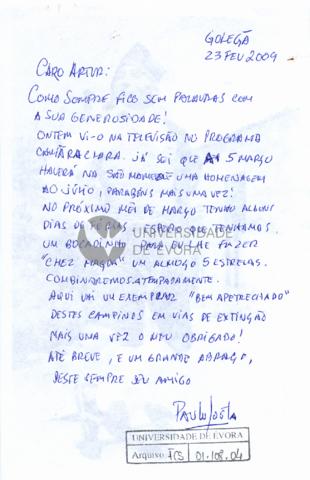 GOLEGÃ
23 FEV 2009
CARO ARTUR:
COMO SEMPRE FICO SEM PALAVRAS COM
A SUA GENEROSIDADE!
ONTEM VI-O NA TELEVISÃO NO PROGRAMA
CÂMARA CLARA. JÁ SEI QUE A 5 MARÇO
HAVERÁ NA UMA HOMENAGEM
AO JÚLIO, PARABÉNS MAIS UMA VEZ!
NO PRÓXIMO MÊS DE MARÇO TENHO ALGUNS
DIAS DE FÉRIAS E ESPERO QUE TENHAMOS
UM BOCADINHO PARA EU LHE FAZER
"CHEZ MAGDA" UM ALMOÇO 5 ESTRELAS.
COMBINAREMOS ATEMPADAMENTE.
AQUI VAI UM EXEMPLAR "BEM APETRECHADO"
DESTES CAMPINOS EM VIAS DE EXTINÇÃO
MAIS UMA VEZ O MEU OBRIGADO!
ATÉ BREVE, E UM GRANDE ABRAÇO,
DESTE SEMPRE SEU AMIGO
UNIVERSIDADE
DE ÉVORA
UNIVERSIDADE DE EVORA
Arquivo FCS 01.108.04